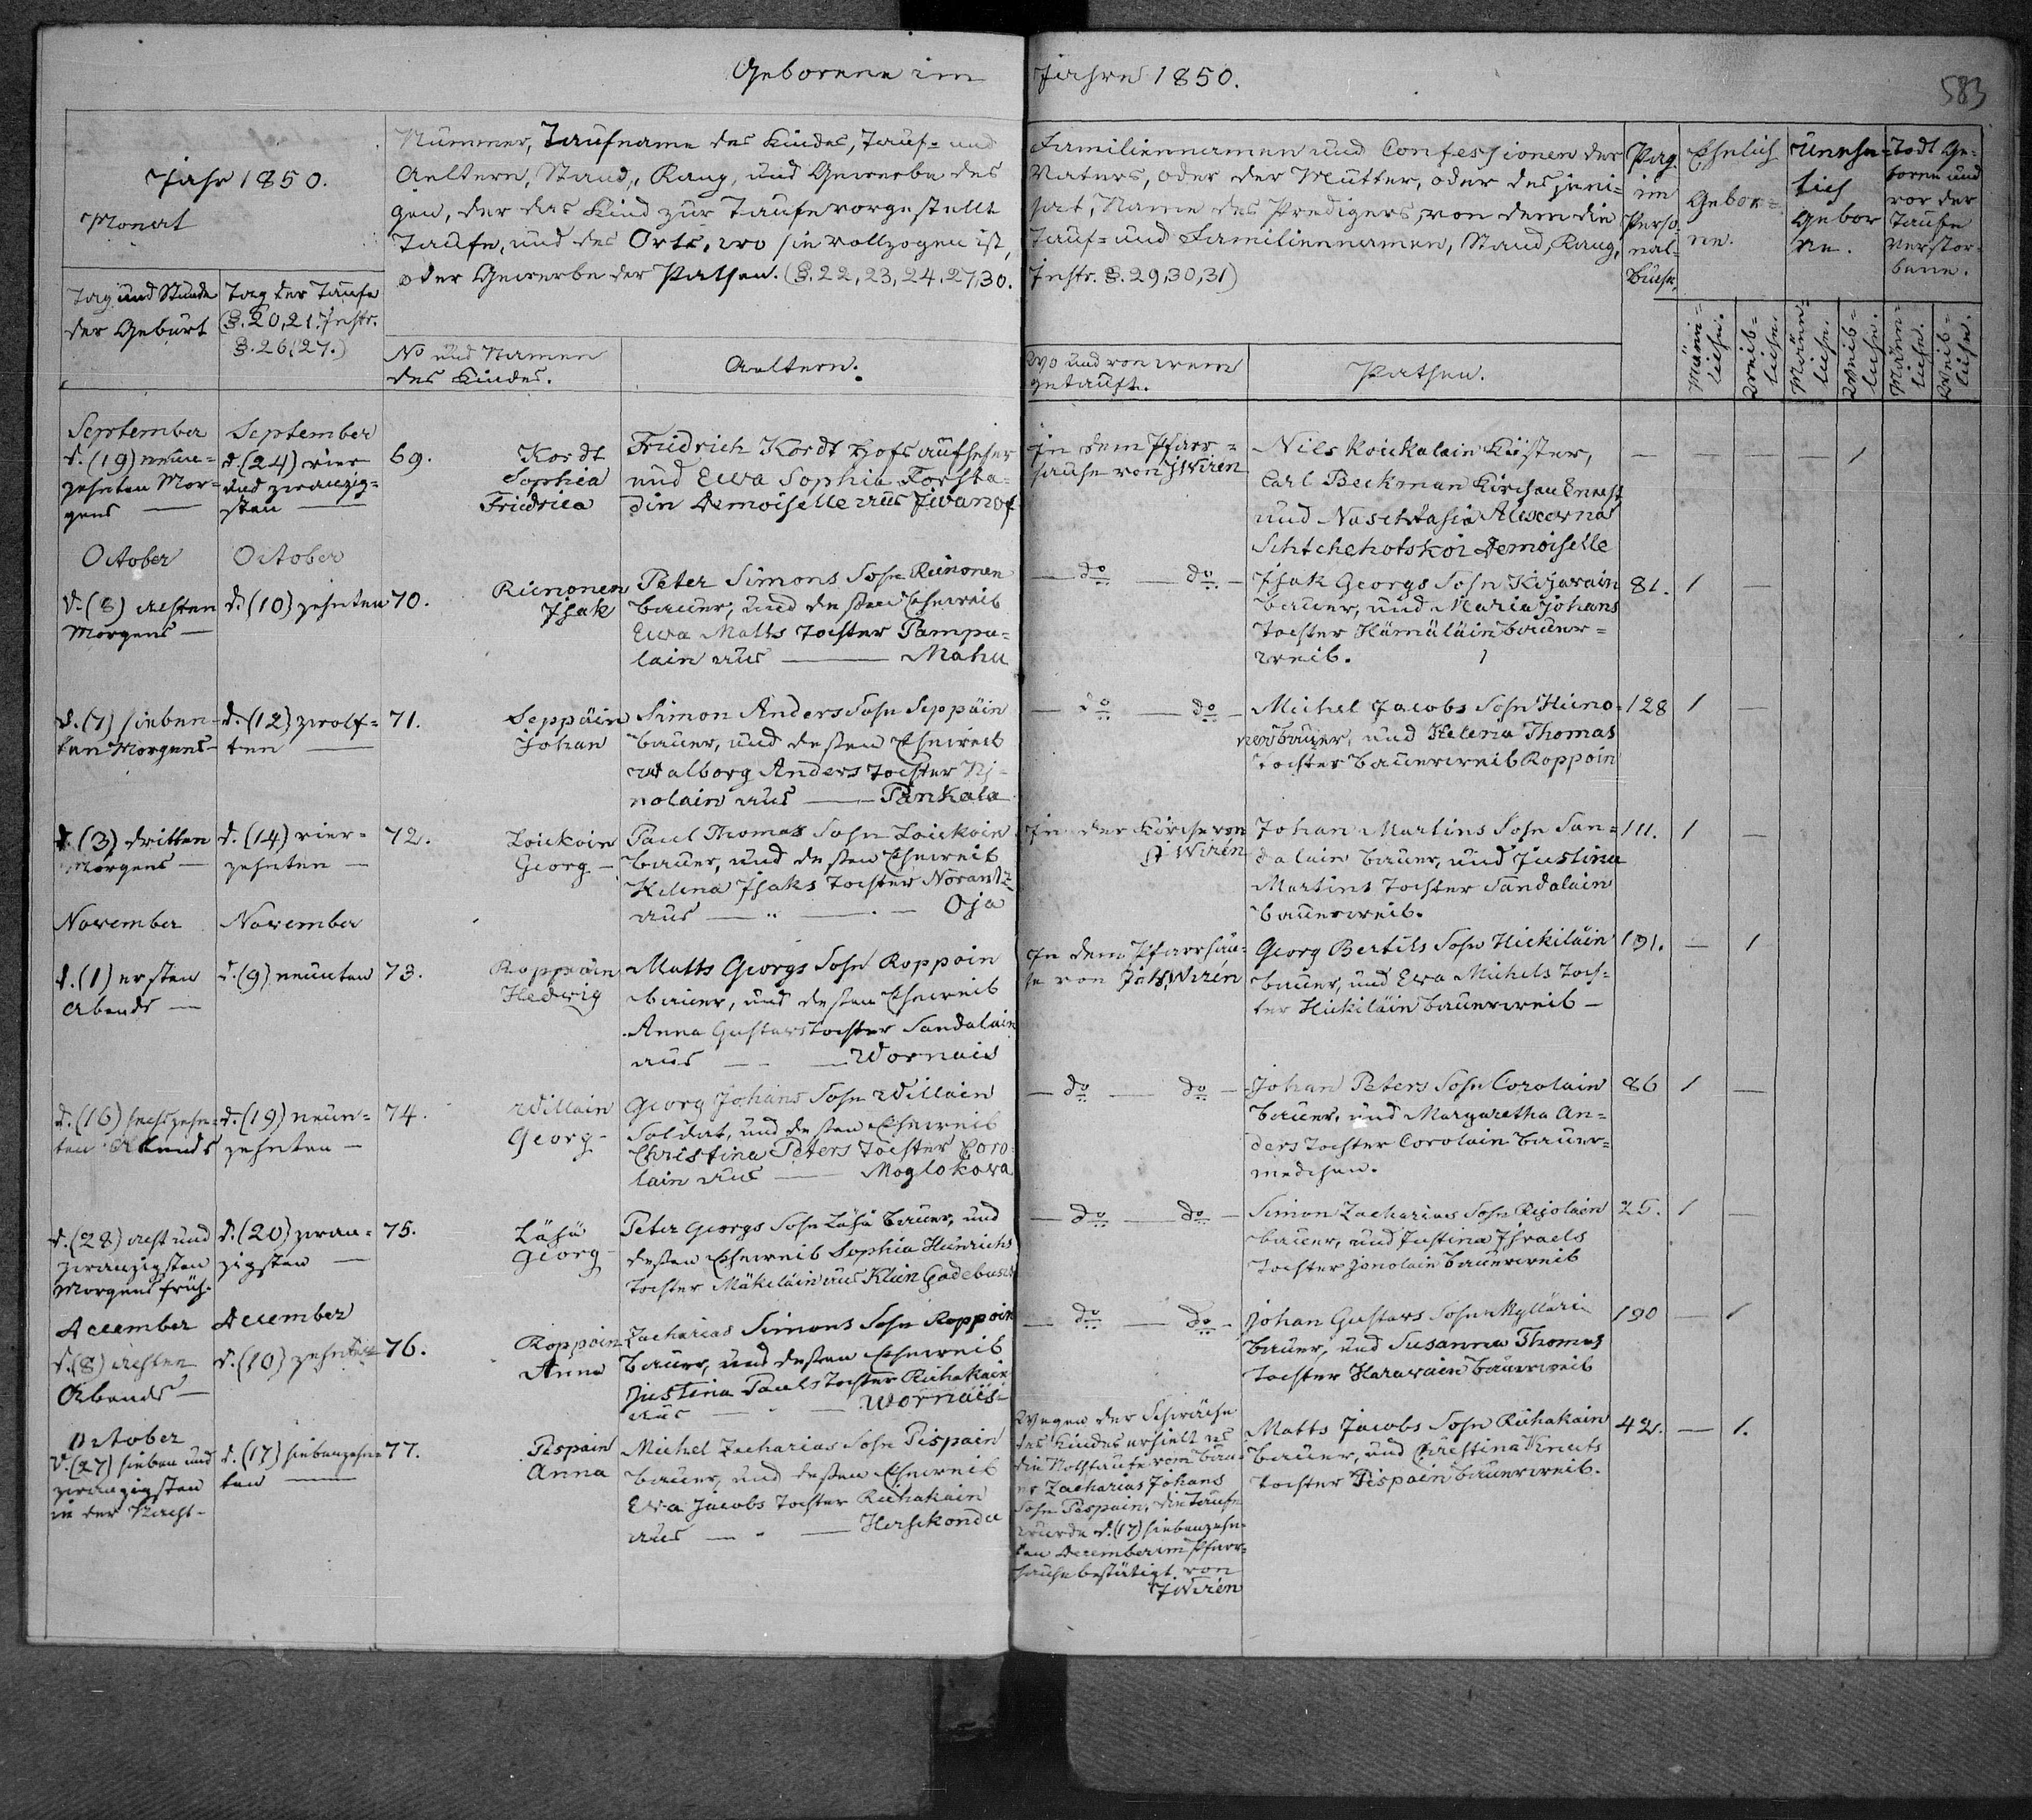 Geborene im Jahre 1850.
583
Jahr 1850.
Monat
Tag und Stunde
der Geburt
Tag der Taufe
(§. 20, 21. Instr.
§. 26, 27.)
Nummer, Taufname des Kindes, Tauf= und
Aeltern, Stand, Rang, und Gewerbe des
gen, der das Kind zur Taufe vorgestellt
Taufe, und des Orts, wo sie vollzogen ist,
oder Gewerbe der Pathen. (§. 22, 23, 24, 27, 30.
No und Namen
des Kindes.
Aeltern.
Familiennamen und Confessionen der
Vaters, oder der Mutter, oder desjeni=
hat, Name des Predigers, von dem die
Tauf= und Familiennamen, Stand, Rang,
Instr. §. 29, 30, 31)
Wo und von wem
getauft.
Pathen.
Pag.
im
Perso
nal=
buche.
Ehelich
Gebor=
ne.
Unehe=
lich
Gebor
ne.
Todt Ge=
borene und
vor der
Taufe
verstor=
bene.
Männ=
liche.
Weib=
liche.
Männ=
liche.
Weib=
liche.
Männ=
liche.
Weib=
liche.
September
d. (19) neun=
zehnten Mor=
gens —
September
d. (24) vier
und zwanzig=
sten —
69.
Kordt
Sophia
Friedrica
Friedrich Kordt Hofs aufseher
und Ewa Sophia Forsta=
din Demoiselle aus Jivanof
In dem Pfarr=
hause von J Wirén
Nils Koukalain Küster,
Carl Beckman Kirchen
und Naschtasia Alexewnas
Schtchehotskoi Demoiselle
— — — — 1
October
d. (8) achten
Morgens —
October
d. (10) zehnten
70.
Riinonen
Isak
Peter Simons Sohn Riinonen
bauer, und dessen Eheweib
Ewa Matts Tochter Pampa=
lain aus — Mahu
— do — do —
Isak Georgs Sohn Kiharain
bauer, und Maria Johans
Tochter Hämäläin bauer=
weib.
81.
1 —
d. (7) sieben=
ten Morgens —
d. (12) zwölf=
ten —
71.
Seppäin
Johan
Simon Anders Sohn Seppäin
bauer, und dessen Eheweib
Walborg Anders Tochter Ni=
nolain aus — Pankala
— do — do —
Michel Jacobs Sohn Huno=
nen bauer, und Helena Thomas
Tochter bauerweib Roppoin
128
1 —
d. (3) dritten
Morgens —
d. (14) vier=
zehnten —
72.
Loickoin
Georg —
Paul Thomas Sohn Loickoin
bauer, und dessen Eheweib
Helena Isaks Tochter Norantz
aus — Oja
In der Kirche von
J Wirén
Johan Martins Sohn San=
dalain bauer, und Justina
Martins Tochter Sandalain
bauerweib.
111.
1 —
November
d. (1) ersten
Abends —
November
d. (9) neunten
73.
Roppoin
Hedwig
Matts Georgs Sohn Roppoin
bauer, und dessen Eheweib
Anna Gustavs Tochter Sandalain
aus — Wornais
In dem Pfarrhau=
se von Joh. Wirén
Georg Bertils Sohn Hickiläin
bauer, und Ewa Michels Toch=
ter Hickiläin bauerweib —
191.
— 1
d. (16) sechszehn=
ten Abends
d. (19) neun=
zehnten —
74.
Willain
Georg —
Georg Johans Sohn Willain
Soldat, und dessen Eheweib
Christina Peters Tochter Coro=
lain aus — Moglokowa
— do — do —
Johan Peters Sohn Corolain
bauer, und Margaretha An=
ders Tochter Corolain bauer=
medchen.
86
1 —
d. (28) acht und
zwanzigsten
Morgens früh.
d. (20) zwan=
zigsten —
75.
Lähü
Georg —
Peter Georgs Sohn Lähü bauer, und
dessen Eheweib Sophia Heinrichs
Tochter Mäkeläin aus Klein Godebusch
— do — do —
Simon Zacharias Sohn Repolain
bauer, und Justina Israels
Tochter Jonolain bauerweib
25.
1 —
December
d. (8) achten
Abends —
December
d. (10) zehnten
76.
Roppoin
Anna
Zacharias Simons Sohn Roppoin
bauer, und dessen Eheweib
Justina Pauls Tochter Riihakain
aus — Wornais
— do — do —
Johan Gustavs Sohn Mylläri
bauer, und Susanna Thomas
Tochter Harawain bauerweib
190
— 1
October
d. (27) sieben und
zwanzigsten
in der Nacht —
d. (17) siebenzehn=
ten —
77.
Pispain
Anna
Michel Zacharias Sohn Pispain
bauer, und dessen Eheweib
Ewa Jacobs Tochter Riihakain
aus — Herschkonda
Wegen der Schwäche
des Kindes erhielt es
die Nothtaufe vom bau=
er Zacharias Johans
Sohn Pispain, die Taufe
wurde d. (17) siebenzehn=
ten December im Pfarr=
hause bestätigt von
J Wirén
Matts Jacobs Sohn Riihakain
bauer, und Christina Knuts
Tochter Pispain bauerweib.
42.
— 1.